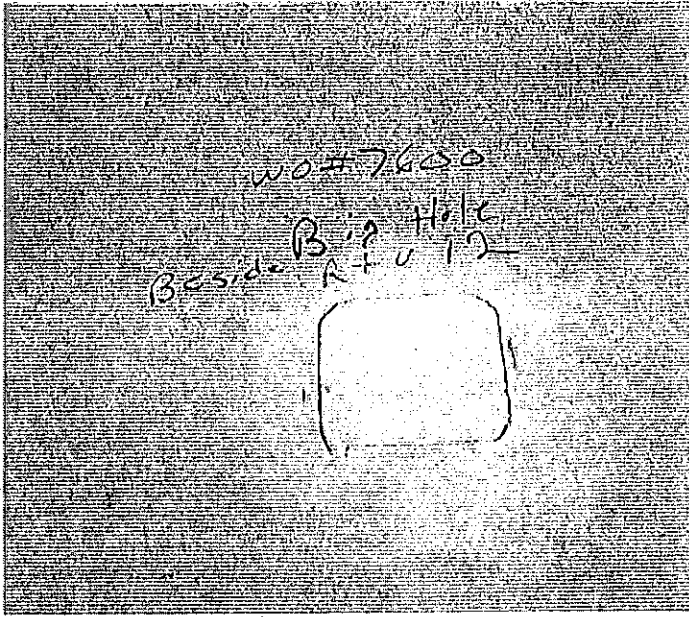 WO#7600
Big Hole
Beside RTU 12